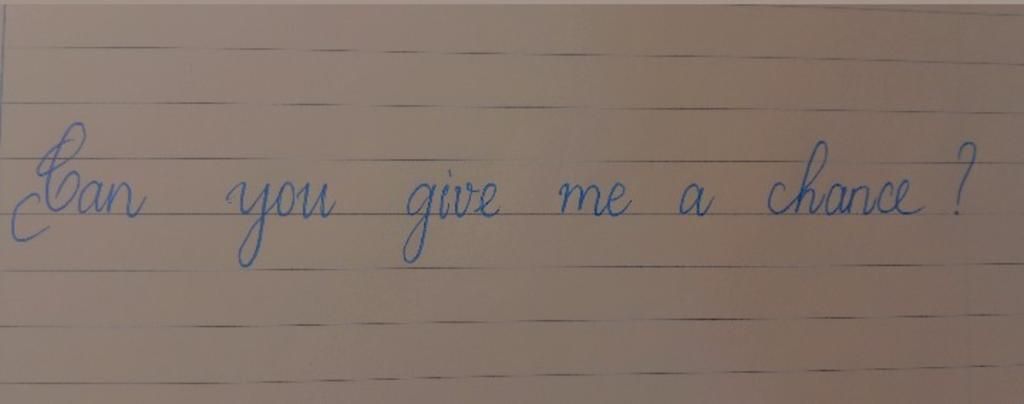 Can you give me a chance?